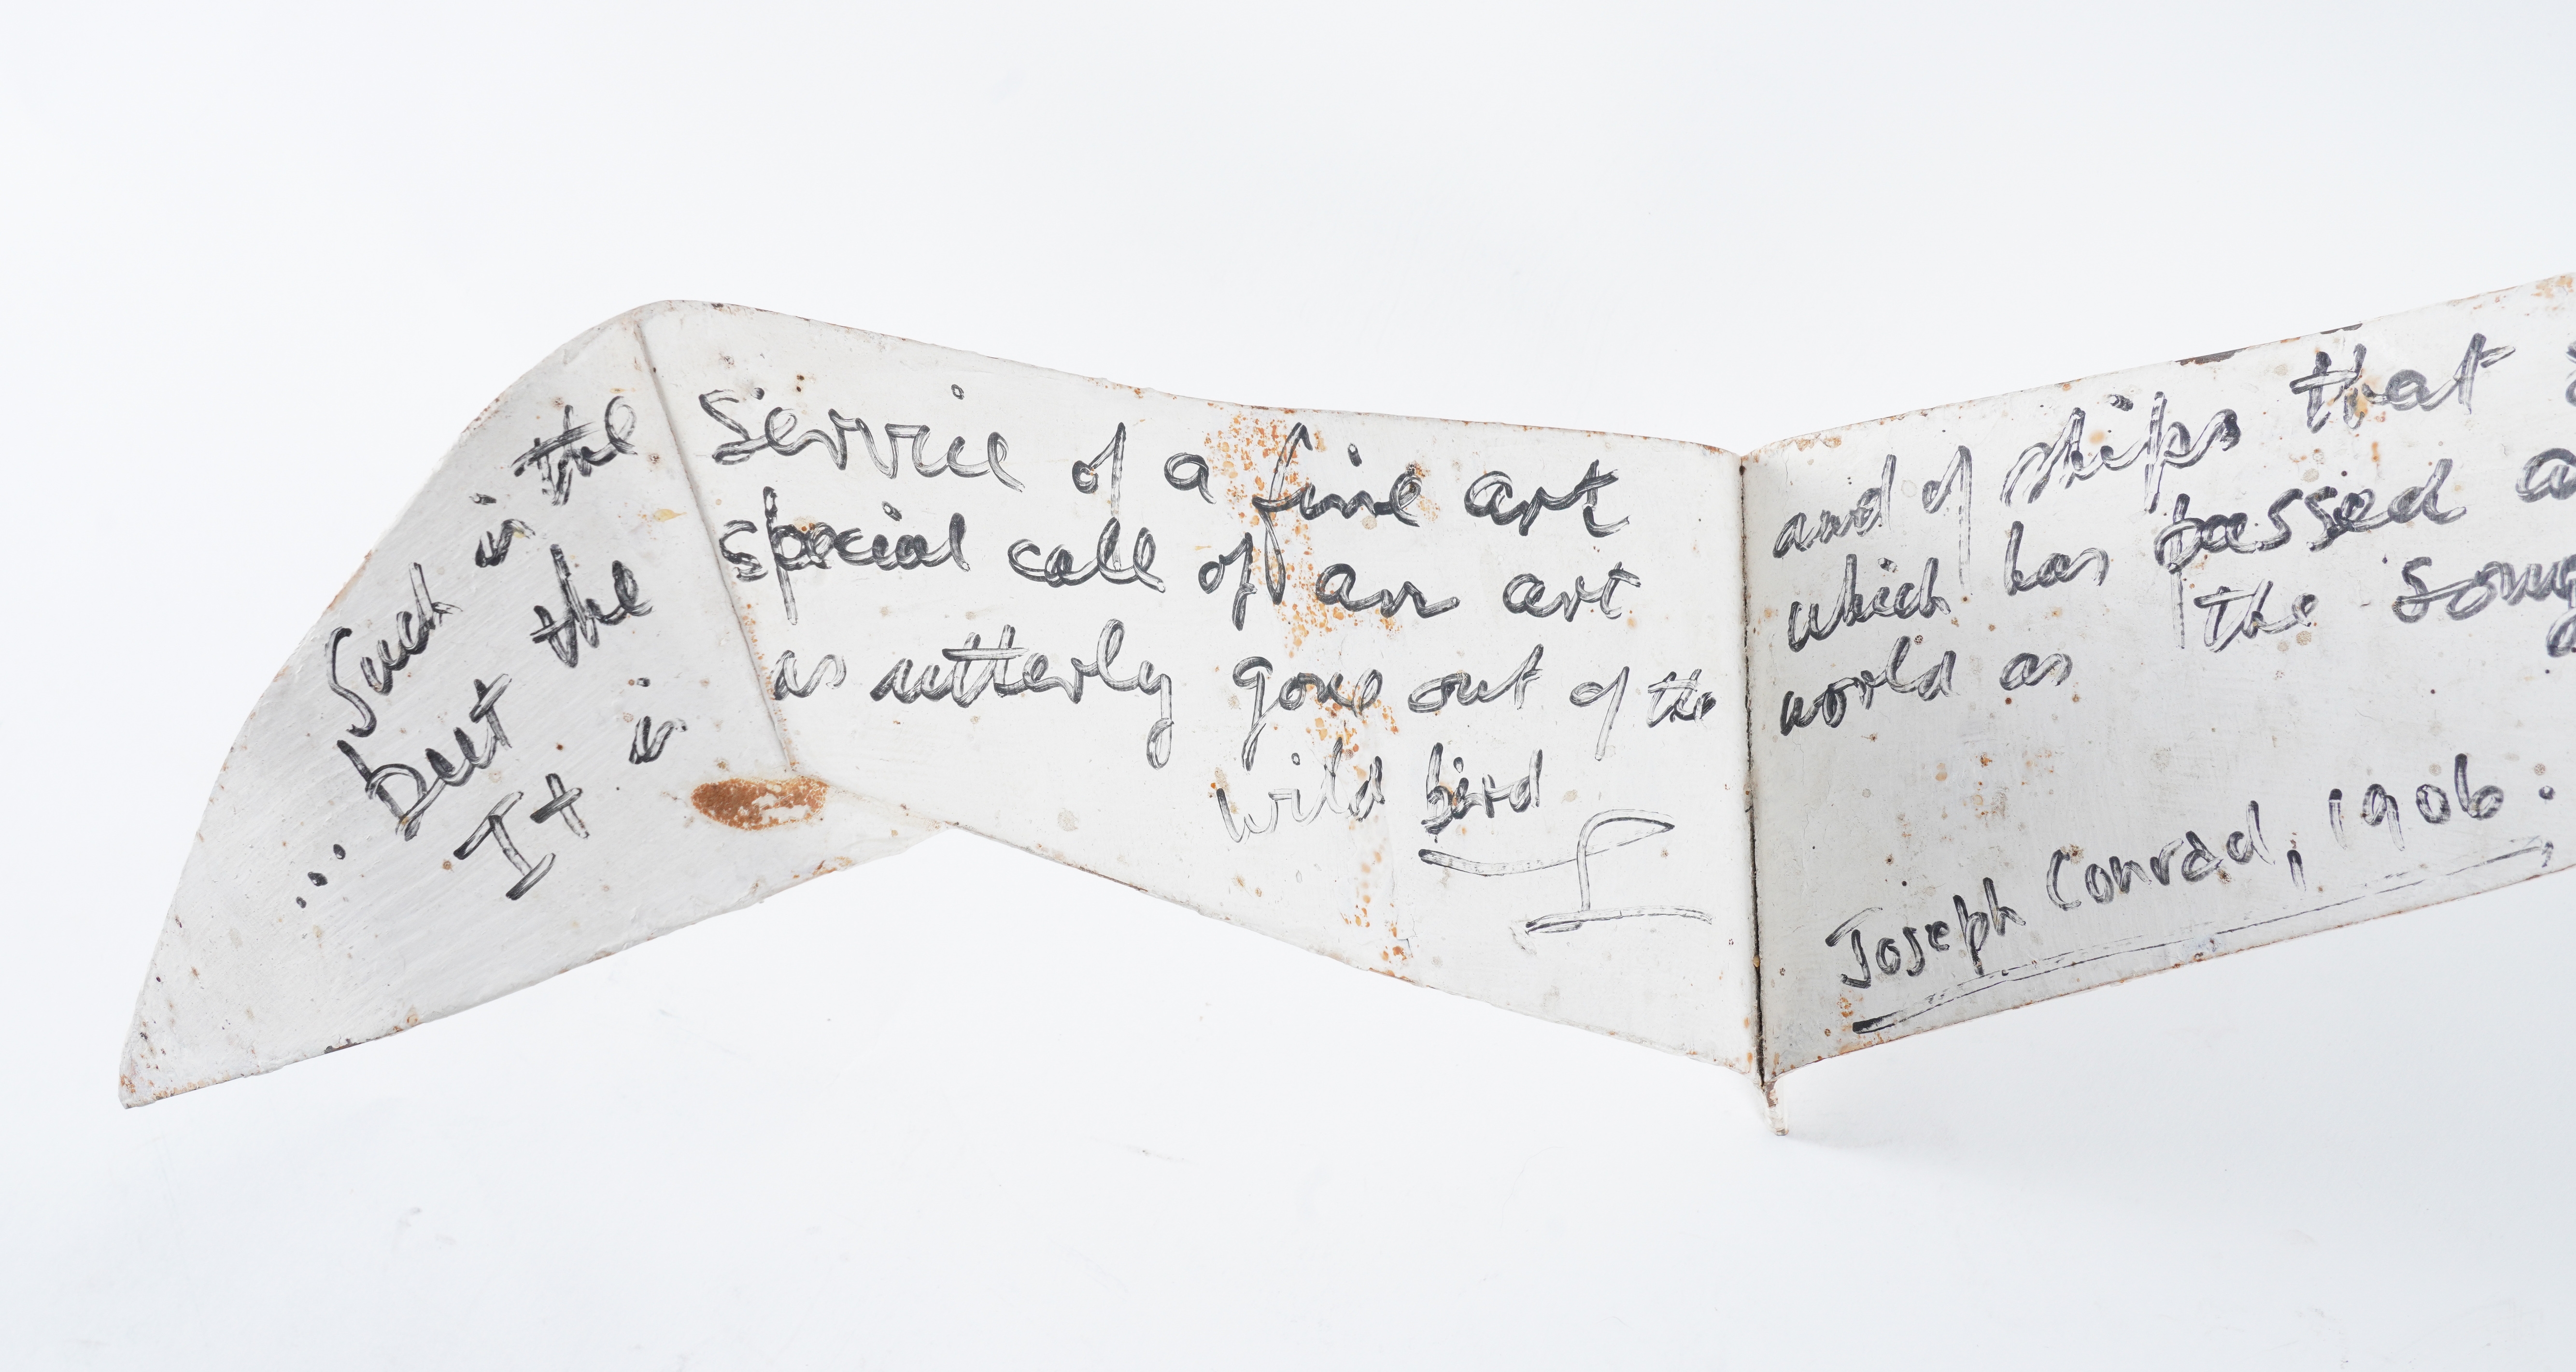 Such is the Service of a fine art and of ships that
... but the special call of an art which has passed
It is as utterly gone out of the world as the song
wild bird
Joseph Conrad, 1906.